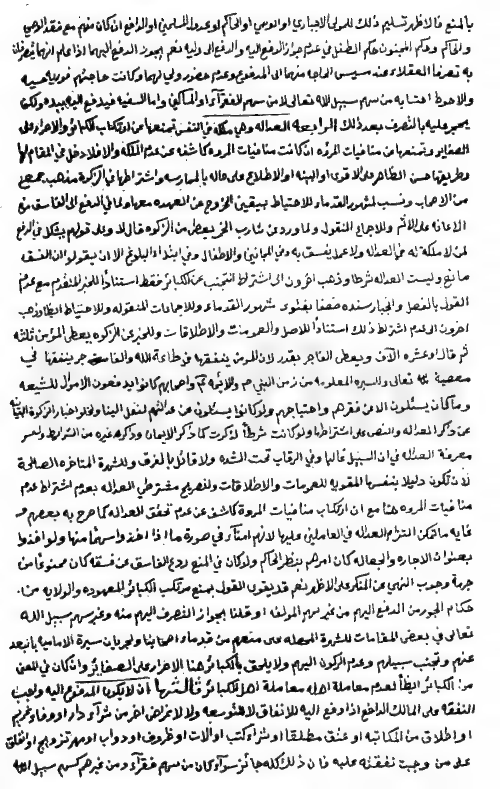 بالمنع فالاظهر تسليم ذلك للولي الاجباري او الوصي او الحاكم او عدول المسلمين او الدافع ان كان منهم مع فقد الوصي
والحاكم وحكم المجنون حكم الطفل في عدم جواز الدفع اليه والدفع الى وليه نعم يجوز الدفع اليهما اذا علم
به تصرف العقلاء عند مسيس الحاجة منهما الى المدفوع وعدم حضور وليهما وكانت حاجتهم فورية
والاحوط احتسابه من سهم سبيل الله تعالى لا من سهم الفقراء والمساكين واما السفيه فيدفع اليه ولكن
يحجر عليه بالتصرف بعد ذلك الرابعة العدالة وهي ملكة في النفس تمنعها من ارتكاب الكبائر والاصرار على
الصغاير وتمنعها من منافيات المروة ان كانت منافيات المروة كاشفة عن عدم الملكة والا فلا دخل في المقام لها
وطريقها حسن الظاهر على الاقوى او البينة او الاطلاع على حاله بالممارسة واشتراطها في الزكوة مذهب جمع
من الاصحاب ونسب لمشهور القدماء وللاحتياط بيقين الخروج عن العهدة معها ولما في الدفع الى الفاسق من
الاعانة على الاثم وللاجماع المنقول ولما ورد عن شارب الخمر يعطى من الزكوة قال لا وعلى قولهم يشكل في الدفع
لمن لا ملكة له على العدالة ولا عمد يفسق به وفي المجانين والاطفال وفي ابتداء البلوغ الا ان يقولوا ان الفسق
مانع وليست العدالة شرطا وذهب اخرون الى اشتراط التجنب عن الكبائر فقط استنادا للخبر المتقدم مع عدم
القول بالفصل وانجبار سنده ضعفا بفتوى مشهور القدماء وللاجماعات المنقولة وللاحتياط ايضا وذهب
اخرون الى عدم اشتراط ذلك استنادا للاصل والعمومات والاطلاقات وللخبر عن الزكوة يعطى المؤمن ثلثة
ثم قال او عشرة الاف ويعطى الفاجر بقدر لان المؤمن ينفقها في طاعة الله والفاجر ينفقها في
معصية الله تعالى والسيرة المعلومة من زمن النبي ص والائمة ع واصحابهم كانوا يدفعون الاموال للشيعة
وما كان يسئلون الا عن فقرهم واحتياجهم ولو كانوا يسئلون عن عدالتهم لنقل الينا ولخلو اخبار الزكوة
عن ذكر العدالة والنص على اشتراطها ولو كانت شرطا لذكرت كما ذكر الايمان وذكر غيره من الشرايط ولعسر
معرفة العدالة في ابن السبيل غالبا وفي الرقاب تحت الشدة ولا قائل بالفرق وللشهرة المتاخرة الصالحة
لان تكون دليلا بنفسها المقوية للعمومات والاطلاقات ولتصريح مشترطي العدالة بعدم اشتراط عدم
منافيات المروة هنا مع ان ارتكاب منافيات المروة كاشف عن عدم تحقق العدالة كما صرح به بعضهم
غاية ما تمكن التزام العدالة في العاملين عليها لانهم امناء في صورة ما اذا اخذوا سهما منها ولو اخذوا
بعنوان الاجارة والجعالة كان امرهم بنظر الحاكم ولو كان في المنع ردع الفاسق عن فسقه كان ممنوعا من
جهة وجوب النهي عن المنكر على الاظهر نعم قد يقوى القول بمنع مرتكب الكبائر المعهودة والولاية من
حكام الجور من الدفع اليهم من غير سهم المؤلفة او قلنا بجواز التصرف اليهم منه وغير سهم سبيل الله
تعالى في بعض المقامات للشهرة المحصلة على منعهم من قدماء اصحابنا ولجريان سيرة الامامية بالتبعد
عنهم وتجنب سبيلهم وعدم الركون اليهم ولا يلحق بالكبائر هنا الاصرار على الصغاير وان كان في المعنى
من الكبائر ايضا لعدم معاملة اهله معاملة اهل الكبائر ثالثها ان لا يكون المدفوع اليه واجب
النفقة على المالك الدافع اذا دفع اليه للانفاق لا للتوسعة ولا لاغراض اخر من شراء دار او وفاء غريم
او اطلاق من المكاتبة او عتق مطلقا او شراء كتب او الات او ظروف او دواب او مهر تزويج او انفاق
على من وجبت نفقته عليه فان ذلك كله جائز سواء كان من سهم فقراء او من غيرهم كسهم سبيل الله